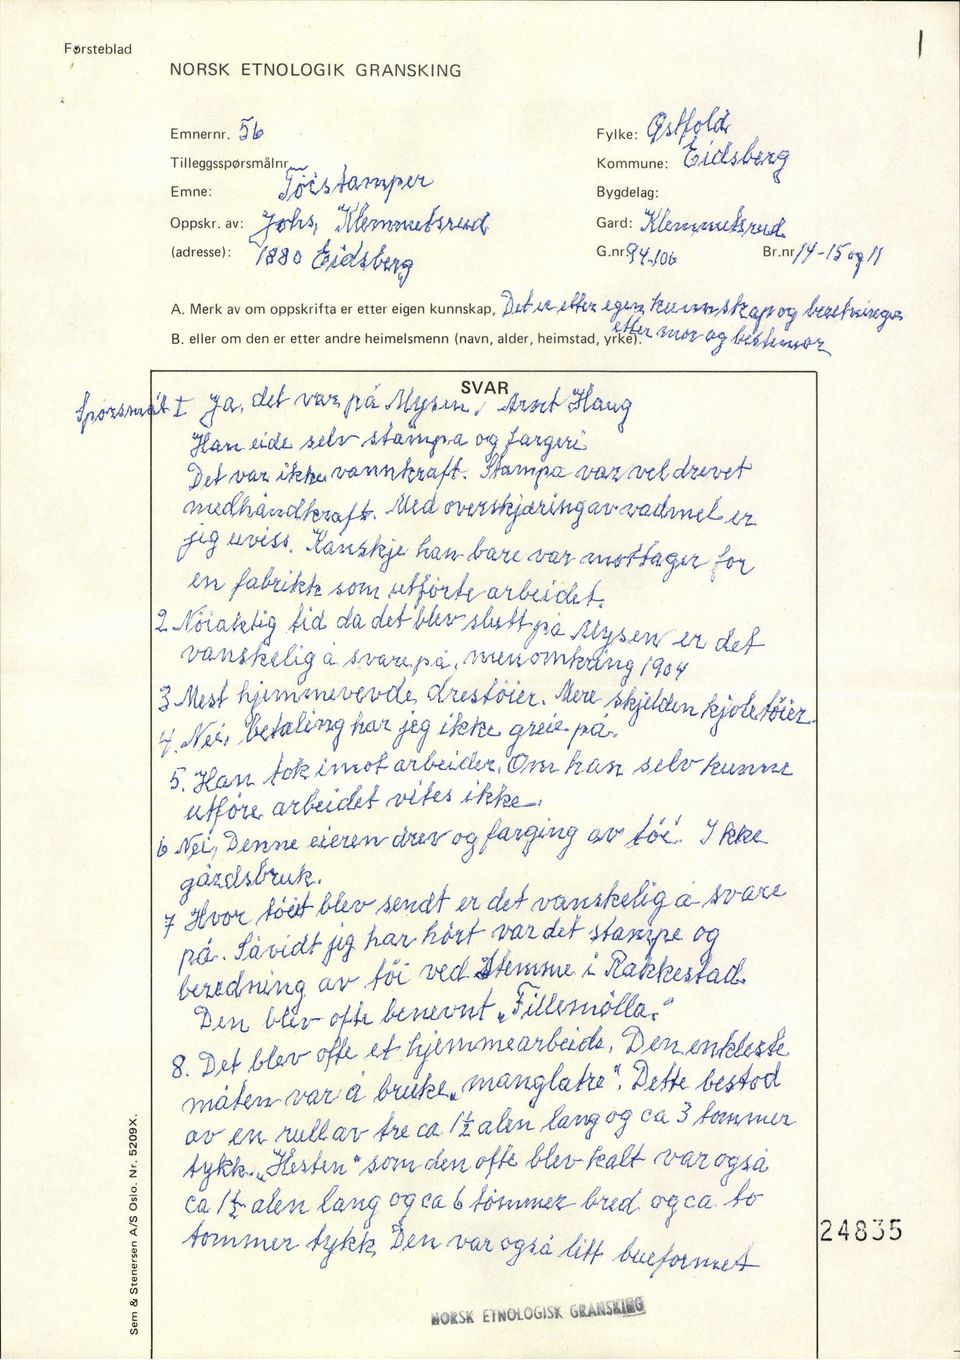 Førsteblad
1
NORSK ETNOLOGIK GRANSKING
Emnernr. 56
Fylke: Østfold
Tilleggsspørsmålnr.
Kommune: Eidsberg
Emne: Töistamper
Bygdelag:
Oppskr. av: Johs, Klemmetsrud
Gard: Klemmetsrud
(adresse): 1880 Eidsberg
G.nr 94-106 Br.nr 14-15 og 11
A. Merk av om oppskrifta er etter eigen kunnskap, Det er efter egen kunnskap og beretninger
B. eller om den er etter andre heimelsmenn (navn, alder, heimstad, yrke). efter mor og bestemor
SVAR
Sporsmål I Ja, det var på Mysen, Arnt Haug
Han eide selv stampa og fargeri
Det var ikke vannkraft. Stampa var vel drevet
med håndkraft. Med overskjæring av vadmel er
jeg uviss. Kanskje han bare var mottager for
en fabrikk som utförte arbeidet.
2. Nöiaktig tid da det blev slutt på Mysen er det
vanskelig å svare på, men omkring 1904
3 Mest hjemmevevde dresstöier. Mere skjelden kjoletöier.
4. Nei, Betaling har jeg ikke greie på.
5. Han tok imot arbeider. Om han selv kunne
utföre arbeidet vites ikke.
6 Nei, Denne eieren drev og farging av töi. Ikke
gårdsbruk.
7 Hvor töiet blev sendt er det vanskelig å svare
på. Såvidt jeg har hört var det stampe og
beredning av töi ved Stemme i Rakkestad.
Den blev ofte benevnt "Fillemölla."
8. Det blev ofte et hjemmearbeide. Den enkleste
måten var å bruke "manglatre". Dette bestod
av en rull av tre ca 1½ alen lang og ca 3 tommer
tykk. "Hesten" som den ofte blev kalt var også
ca 1½ alen lang og ca 6 tommer bred og ca to
tommer tykk Den var også litt bueformet
24835
Sem & Stenersen A/S Oslo. Nr. 5209X.
NORSK ETNOLOGISK GRANSKING